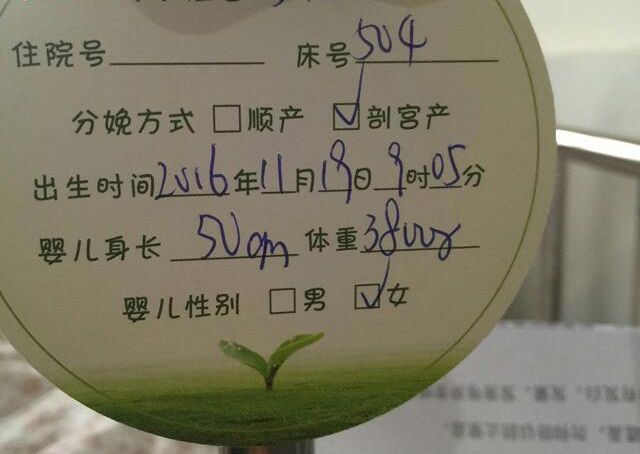 住院号 床号504
分娩方式 □顺产 ☑剖宫产
出生时间2016年11月19日9时05分
婴儿身长 50cm 体重3800g
婴儿性别 □男 ☑女